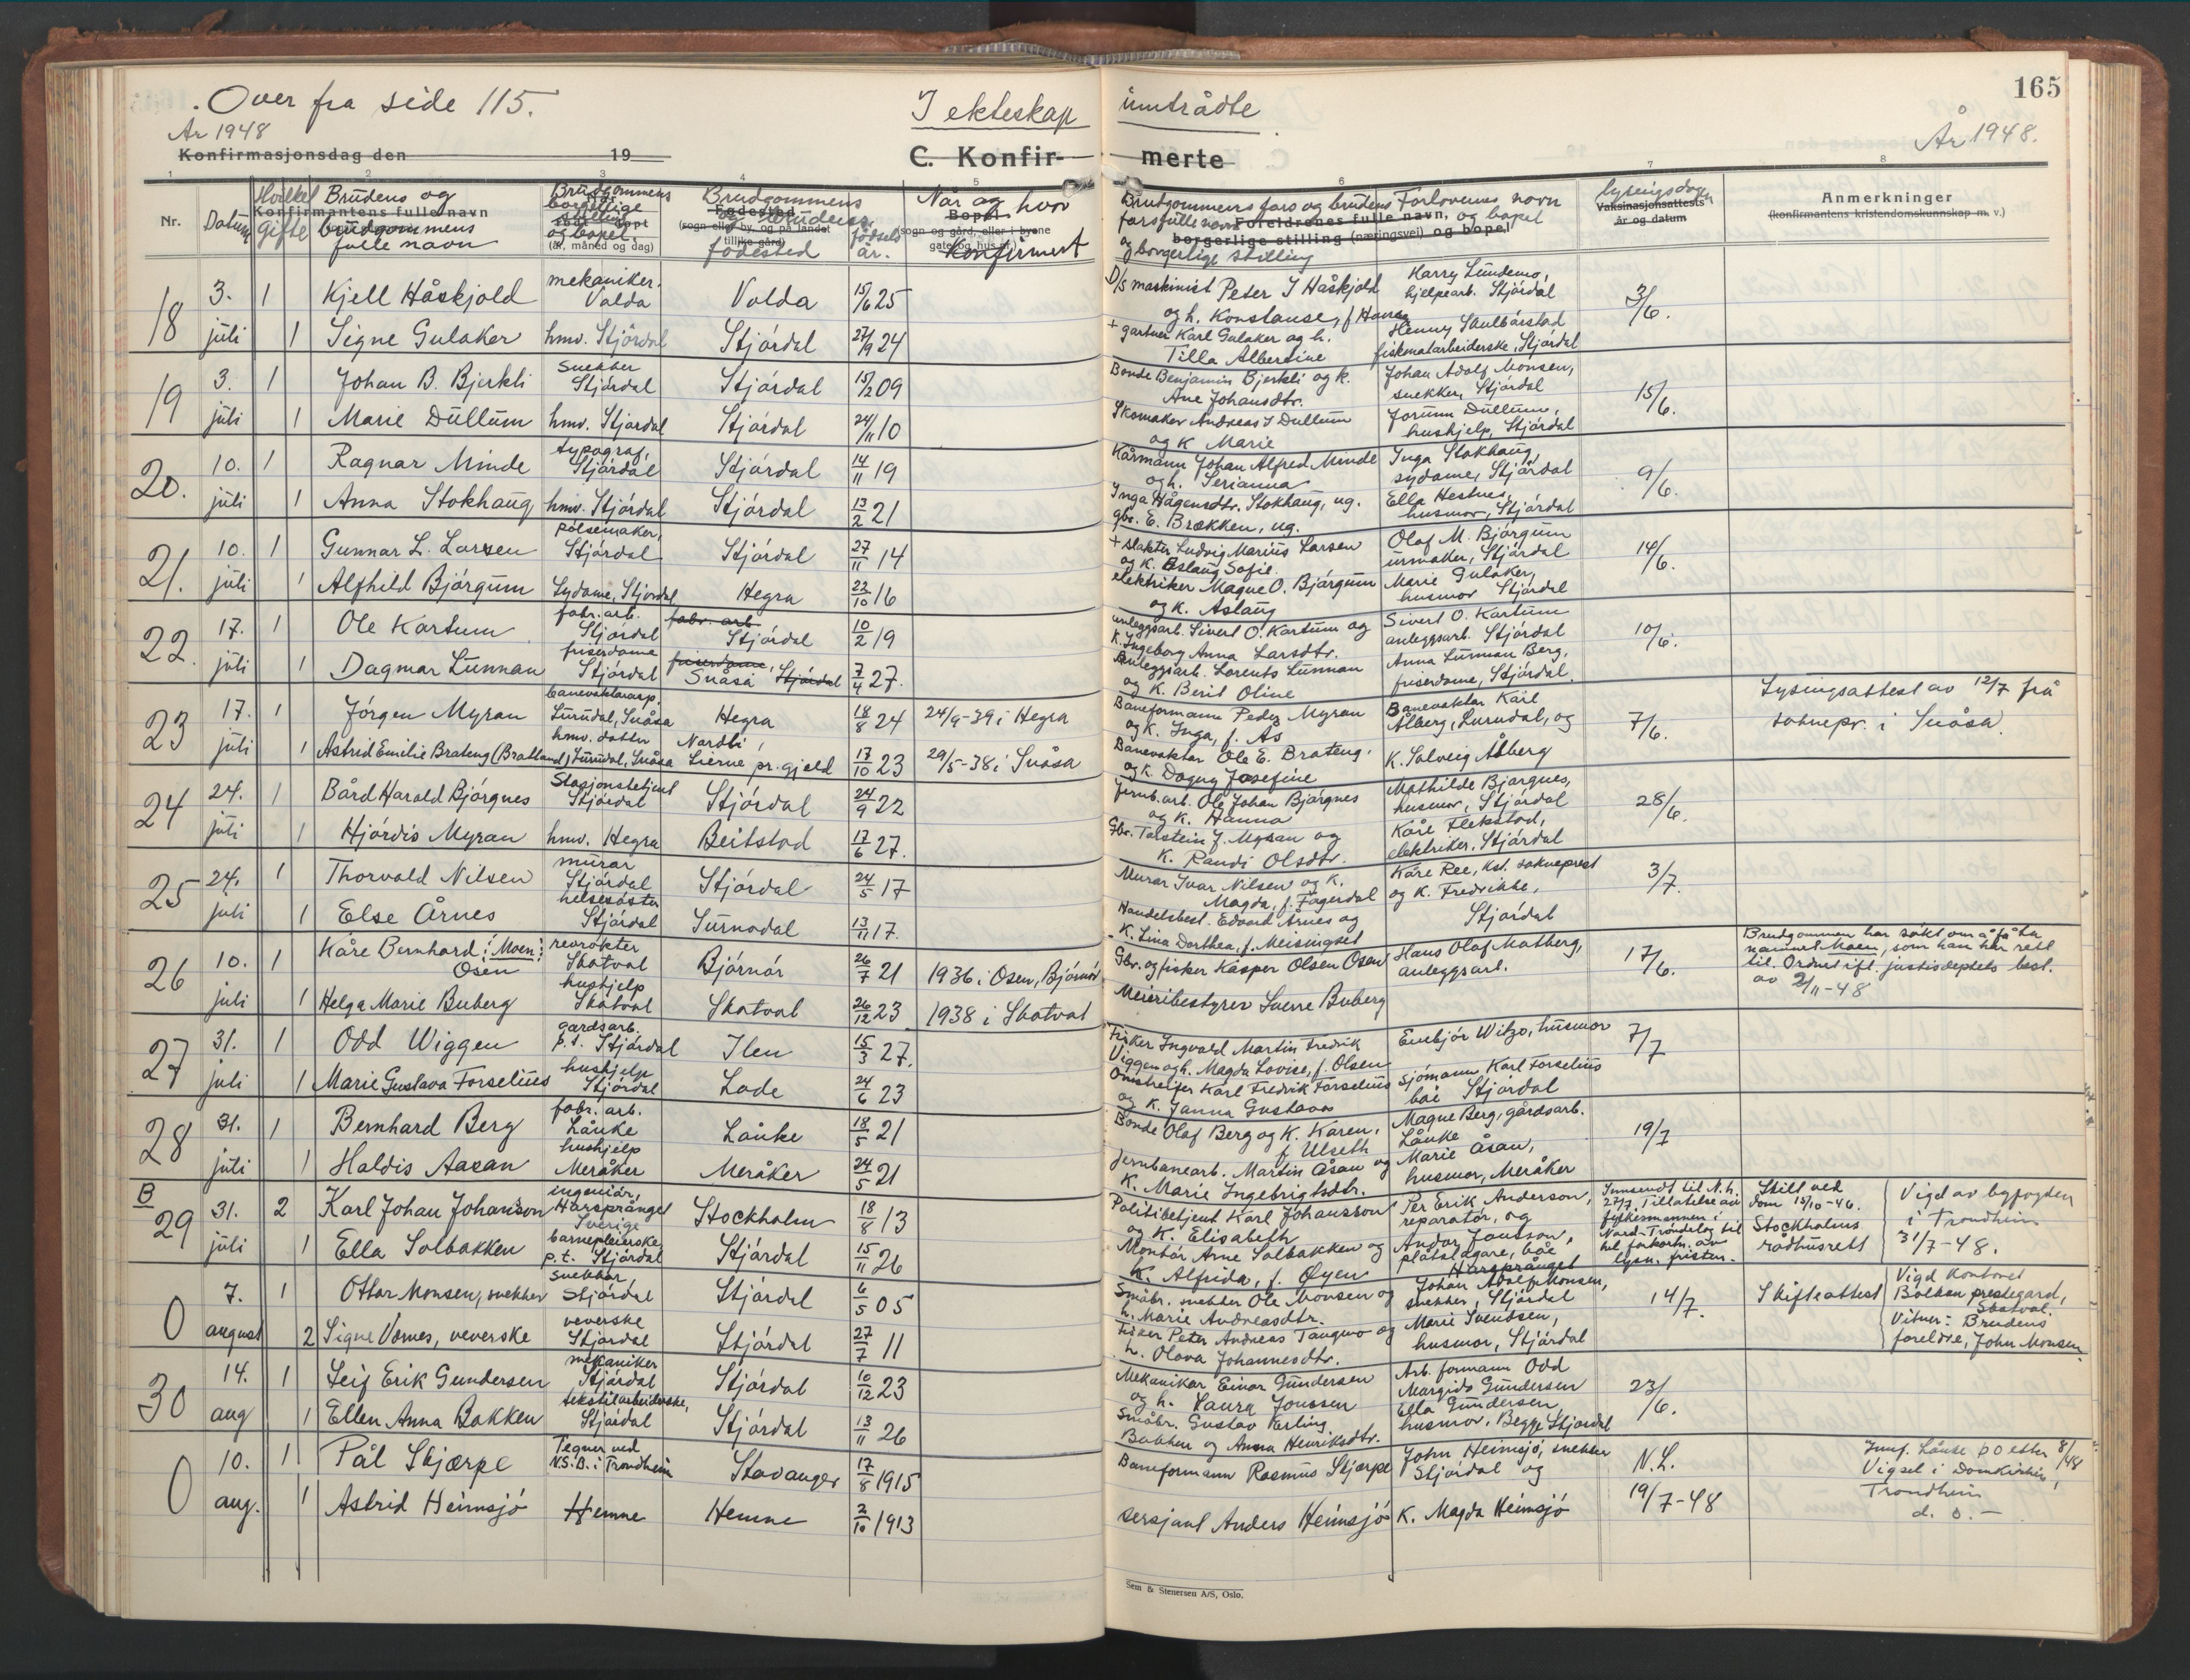 165
. Over fra side 115.
I ekteskap inntrådte
År 1948
År 1948.
Konfirmasjonsdag den 19
C. Konfirmerte
1 2 3 4 5 6 7 8
Nr.
Datum
Hvilket Gifte
Brudens og brudgommens fulle navn
Konfirmantens fulle navn
Brudgommens borgerlige stilling og bopel.
(år, måned og dag)
Brudgommens og brudens fødested
Fødested
(sogn eller by, og på landet tillike gård)
fødsels år.
Når og hvor Konfirmert
Bopel
(sogn og gård, eller i byene gate og hus nr.)
Brudgommens fars og brudens farsfulle navn og borgerlige stilling
Foreldrenes fulle navn, borgerlige stilling (næringsvei) og bopel
Forlovernes navn og bopel
lysningsdagen
Vaksinasjonsattests år og datum
Anmerkninger
(konfirmantens kristendomskunnskap m. v.)
18 3. juli 1 Kjell Håskjold mekaniker. Volda Volda 15/6 25
D/s maskinist Peter J Håskjold og h. Konstanse, f Hansen
Harry Lundemo, hjelpearb. Stjørdal
3/6.
1 Signe Gulaker hmv. Stjørdal Stjørdal 27/9 24
+ gartner Karl Gulaker og h. Tilla Albertine
Henny Skulbørstad fiskematarbeiderske, Stjørdal
19 3. juli 1 Johan B. Bjerkli Snekker Stjørdal Stjørdal 15/2 09
Bonde Benjamin Bjerkli og k. Ane Johansdtr.
Johan Adolf Monsen, snekker, Stjørdal
15/6.
1 Marie Dullum hmv. Stjørdal Stjørdal 24/11 10
Skomaker Andreas J Dullum og K Marie
Jorunn Dullum, hushjelp, Stjørdal
20. 10. juli 1 Ragnar Minde typograf, Stjørdal Stjørdal 14/11 19
Kårmann Johan Alfred Minde og h. Serianna
Inga Stokhaug, sydame, Stjørdal
9/6.
1 Anna Stokhaug hmv. Stjørdal Stjørdal 13/2 21
Inga Hågensdtr. Stokhaug, ug. gbr. E. Brækken, ug.
Ella Hestnes, husmor, Stjørdal
21. 10. juli 1 Gunnar L. Larsen pølsemaker, Stjørdal Stjørdal 27/11 14
+ slakter Ludvig Marius Larsen og K. Aslaug Sofie.
Olaf M. Bjørgum urmaker, Stjørdal
14/6.
1 Alfhild Bjørgum Sydame, Stjørdal Hegra 22/10 16
elektriker Magne O. Bjørgum og K. Aslaug
Marie Gulaker, husmor Stjørdal
22. 17. juli 1 Ole Kartum fabr. arb. Stjørdal fabr. arb Stjørdal 10/2 19
anleggsarb. Sivert O. Kartum og K. Ingeborg Anna Larsdtr.
Sivert O. Kartum anleggsarb. Stjørdal
10/6.
1 Dagmar Lunnan friserdame Stjørdal friserdame, Snåsa Stjørdal 7/4 27.
Anleggsarb. Lorents Lunnan og K. Berit Oline
Anna Lunnan Berg, friserdame, Stjørdal.
23 17. juli 1 Jørgen Myran banevokterasp. Lurudal, Snåsa Hegra 18/8 24 24/9-39 i Hegra
Baneformann Peder Myran og K. Inga, f. Ås
Banevokter Karl Ålberg, Lurudal, og K. Solveig Åberg
7/6.
Lysingsattest av 12/7 frå soknepr. i Snåsa.
1 Astrid Emilie Brateng (Bratland) hmv. datter Lurudal, Snåsa Nordli, Lierne pr.gjeld 17/10 23 29/5-38 i Snåsa
Banevokter Ole E. Brateng. og K. Dagny Josefine
24 24. juli 1 Bård Harald Bjørgnes Stasjonsbetjent Stjørdal Stjørdal 24/9 22
Jernb.arb. Ole Johan Bjørgnes og K. Hanna
Mathilde Bjørgnes, husmor, Stjørdal
28/6.
1 Hjørdis Myran hmv. Hegra Beitstad 17/6 27.
Gbr. Torstein J. Myran og K. Randi Olsdtr.
Kåre Flekstad, elektriker. Stjørdal
25 24. juli 1 Thorvald Nilsen murar Stjørdal Stjørdal 24/5 17
Murar Ivar Nilsen og K. Magda, f. Fagerdal
Kåre Ree, kst. sokneprest og K. Fredrikke, Stjørdal
3/7.
1 Else Årnes helsesøster Stjørdal Surnadal 13/11 17.
Handelsbest. Edvard Årnes og K. Lina Dorthea, f. Meisingset
26 10. juli 1 Kåre Bernhard (Moen) Osen revrøkter Skatval Bjørnør 26/7 21 1936 i Osen, Bjørnør
Gbr. og fisker Kasper Olsen Osen
Hans Olaf Matberg, anleggsarb.
17/6.
Brudgommen har søkt om å få ta namnet Moen, som han har rett til. Ordnet ifl. justisdeptets best. av 2/11-48
1 Helga Marie Buberg hushjelp Skatval Skatval 26/12 23 1938 i Skatval
Meieribestyrer Sverre Buberg
27 31. juli 1 Odd Wiggen gardsarb. p.t. Stjørdal Ilen 15/3 27.
Fisker Ingvald Martin Fredrik Viggen og h. Magda Lovise, f. Olsen
Embjør Witzo, husmor
7/7
1 Marie Gustava Forselius hushjelp Stjørdal Lade 24/6 23
Omstreifer Karl Fredrik Forselius og K. Janna Gustava
Sjømann Karl Forselius båe Stjørdal
28 31. juli 1 Bernhard Berg fabr. arb. Lånke Lånke 18/5 21
Bonde Olaf Berg og K. Karen, f Ulseth
Magne Berg, gårdsarb. Lånke
19/7
1 Haldis Aasan hushjelp Meråker Meråker 24/5 21
Jernbanearb. Martin Åsan og K. Marie Ingebrigtsdtr.
Marie Åsan, husmor, Meråker
B 29 31. juli 2 Karl Johan Johanson ingeniør, Harsprånget Sverige Stockholm 18/8 13
Politibetjent Karl Johansson og K. Elisabeth
Per Erik Anderson, reparatør, og
Innsendt til N.h. 27/7. Tillatelse av fylkesmannen i Nord-Trøndelag til forkortn. av lysn. fristen.
Skilt ved Dom 15/10-46. Stockholms rådhusrett
Vigd av byfogden i Trondheim 31/7-48.
1 Ella Solbakken barnepleierske p.t. Stjørdal Stjørdal 15/11 26
Montør Arne Solbakken og K. Alfrida, f. Øyen
Andor Jonsson, plåtslagare, båe Harsprånget
0 7. august 1 Ottar Monsen, snekker snekker, Stjørdal Stjørdal 6/5 05
Småbr. snekker Ole Monsen og h. Marie Andreasdtr.
Johan Adolf Monsen, snekker, Stjørdal
14/7.
Skifteattest
Vigd kontoret Bolkan prestegard, Skatval. Vitner: Brudens foreldre, John Monsen.
2 Signe Værnes, veverske veverske Stjørdal Stjørdal 27/7 11
Fisker Peter Andreas Tangmo og h. Olava Johannesdtr.
Marie Svendsen, husmor, Stjørdal
30 14. aug 1 Leif Erik Gundersen mekaniker Stjørdal Stjørdal 10/12 23
Mekanikar Einar Gundersen og h. Laura Jonssen
Arb. formann Odd Margido Gundersen
23/6.
1 Ellen Anna Bakken tekstilarbeiderske, Stjørdal Stjørdal 13/11 26
Småbr. Gustav Erling Bakken og Anna Henriksdtr.
Ella Gundersen, husmor. Begge Stjørdal
0 10. aug. 1 Pål Skjærpe Tegner ved N.S.B. i Trondheim Stavanger 17/8 1915
Baneformann Rasmus Skjærpe
John Heimsjø, snekker Stjørdal og K. Magda Heimsjø
N.L. 19/7-48
Innf. Lånke p o etter 8/48 Vigsel i Domkirken, Trondheim d. o. -
1 Astrid Heimsjø Hemne Hemne 2/10 1913
sersjant Anders Heimsjø
Sem & Stenersen A/S, Oslo.